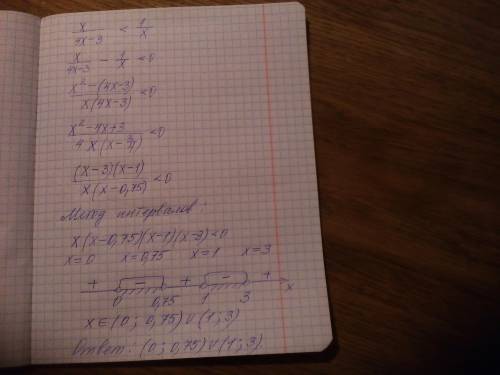 x/(4x-3) < 1/x
x/(4x-3) - 1/x < 0
(x²-(4x-3))/(x(4x-3)) < 0
(x²-4x+3)/(4x(x-3/4)) < 0
((x-3)(x-1))/(x(x-0,75)) < 0
Метод интервалов:
x(x-0,75)(x-1)(x-3)<0
x=0 x=0,75 x=1 x=3
+ - + - +
0 0,75 1 3 x
x∈(0; 0,75)∪(1;3)
Ответ: (0; 0,75)∪(1;3).